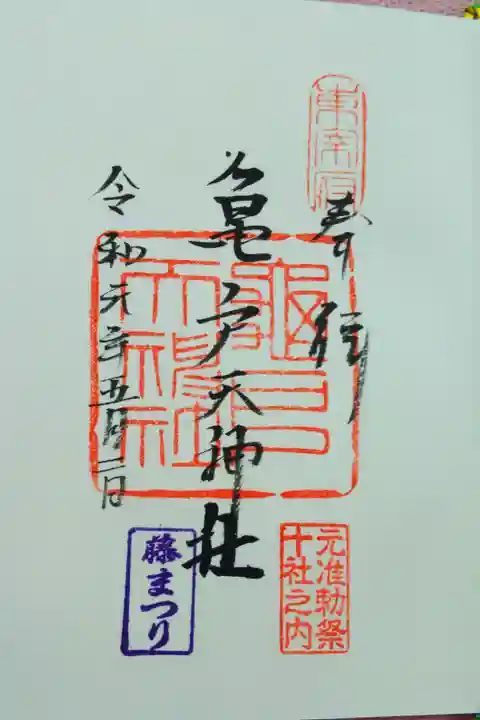 東宰府
奉拝
亀戸天神社
令和元年五月二日
亀戸天神社
元准勅祭
十社之内
藤まつり